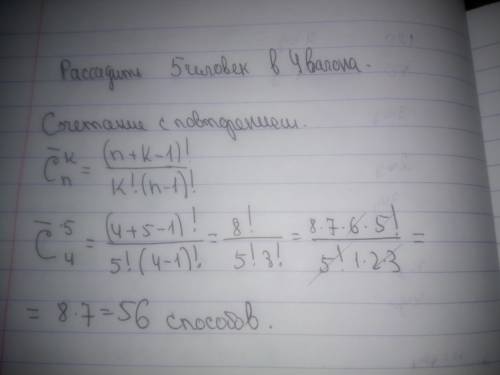 Рассадить 5 человек в 4 вагона.
Сочетание с повторением.
C̄ₙᵏ = (n+k-1)! / k!(n-1)!
C̄₄⁵ = (4+5-1)! / 5!(4-1)! = 8! / 5!3! = 8·7·6·5! / 5!1·2·3 =
= 8·7=56 способов.